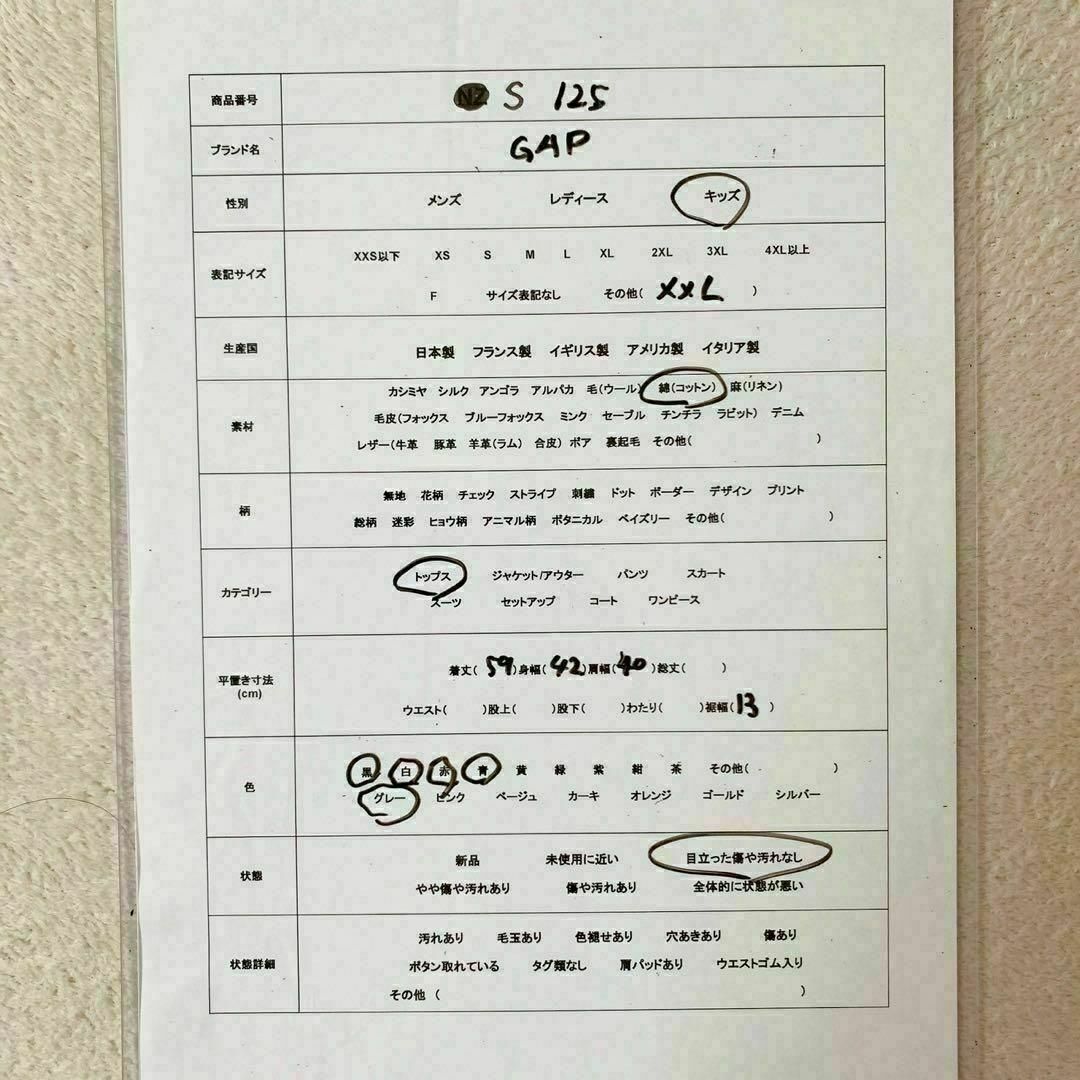 商品番号 NZ S 125
ブランド名 GAP
性別 メンズ レディース キッズ
XXS以下 XS S M L XL 2XL 3XL 4XL以上
表記サイズ
F サイズ表記なし その他( XXL )
生産国 日本製 フランス製 イギリス製 アメリカ製 イタリア製
カシミヤ シルク アンゴラ アルパカ 毛(ウール) 綿(コットン) 麻(リネン)
素材 毛皮(フォックス ブルーフォックス ミンク セーブル チンチラ ラビット) デニム
レザー(牛革 豚革 羊革(ラム) 合皮) ボア 裏起毛 その他( )
無地 花柄 チェック ストライプ 刺繍 ドット ボーダー デザイン プリント
柄
総柄 迷彩 ヒョウ柄 アニマル柄 ボタニカル ペイズリー その他( )
トップス ジャケット/アウター パンツ スカート
カテゴリー
スーツ セットアップ コート ワンピース
着丈( 59 )身幅( 42 )肩幅( 40 )総丈( )
平置き寸法
(cm)
ウエスト( )股上( )股下( )わたり( )裾幅( 13 )
黒 白 赤 青 黄 緑 紫 紺 茶 その他( )
色
グレー ピンク ベージュ カーキ オレンジ ゴールド シルバー
新品 未使用に近い 目立った傷や汚れなし
状態
やや傷や汚れあり 傷や汚れあり 全体的に状態が悪い
汚れあり 毛玉あり 色褪せあり 穴あきあり 傷あり
状態詳細 ボタン取れている タグ類なし 肩パッドあり ウエストゴム入り
その他 ( )